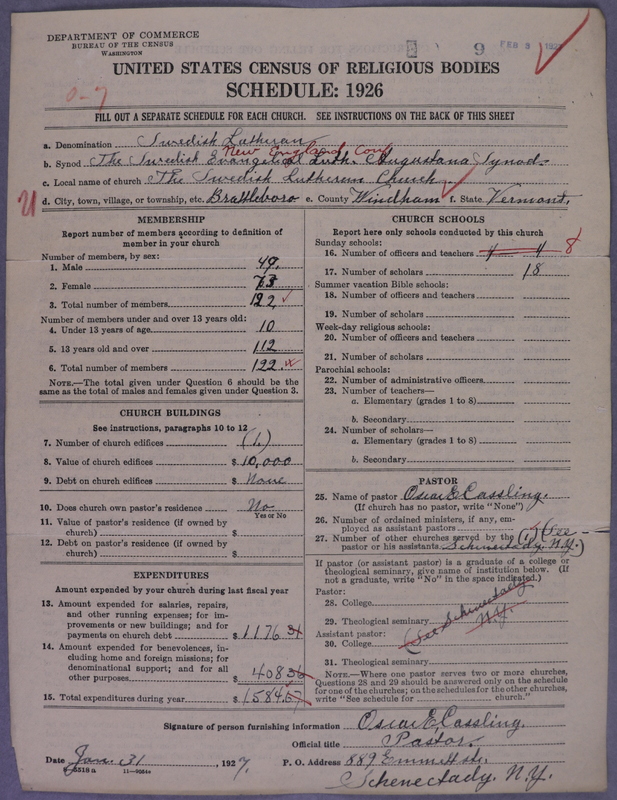 DEPARTMENT OF COMMERCE
BUREAU OF THE CENSUS
WASHINGTON
9 FEB 3 1927
UNITED STATES CENSUS OF RELIGIOUS BODIES
SCHEDULE: 1926
0-7
FILL OUT A SEPARATE SCHEDULE FOR EACH CHURCH. SEE INSTRUCTIONS ON THE BACK OF THIS SHEET
a. Denomination Swedish Lutheran
New England Conf
b. Synod The Swedish Evangelical Luth. Augustana Synod
c. Local name of church The Swedish Lutheran Church
U d. City, town, village, or township, etc. Brattleboro e. County Windham f. State Vermont.
MEMBERSHIP
Report number of members according to definition of
member in your church
Number of members, by sex:
1. Male 49.
2. Female 73
3. Total number of members 122
Number of members under and over 13 years old:
4. Under 13 years of age 10
5. 13 years old and over 112
6. Total number of members 122
NOTE.—The total given under Question 6 should be
the same as the total of males and females given under Question 3.
CHURCH BUILDINGS
See instructions, paragraphs 10 to 12
7. Number of church edifices (1.)
8. Value of church edifices $ 10,000
9. Debt on church edifices $ None
10. Does church own pastor's residence? No
Yes or No
11. Value of pastor's residence (if owned by
church) $
12. Debt on pastor's residence (if owned by
church) $
EXPENDITURES
Amount expended by your church during last fiscal year
13. Amount expended for salaries, repairs,
and other running expenses; for im-
provements or new buildings; and for
payments on church debt $ 1,176 31
14. Amount expended for benevolences, in-
cluding home and foreign missions; for
denominational support; and for all
other purposes $ 408 36
15. Total expenditures during year $ 1,584.67
CHURCH SCHOOLS
Report here only schools conducted by this church
Sunday schools:
16. Number of officers and teachers 4 4 8
17. Number of scholars 18
Summer vacation Bible schools:
18. Number of officers and teachers
19. Number of scholars
Week-day religious schools:
20. Number of officers and teachers
21. Number of scholars
Parochial schools:
22. Number of administrative officers
23. Number of teachers—
a. Elementary (grades 1 to 8)
b. Secondary
24. Number of scholars—
a. Elementary (grades 1 to 8)
b. Secondary
PASTOR
25. Name of pastor Oscar E. Cassling.
(If church has no pastor, write "None")
26. Number of ordained ministers, if any, em-
ployed as assistant pastors
27. Number of other churches served by the (1) (See
pastor or his assistants Schenectady. N.Y.)
If pastor (or assistant pastor) is a graduate of a college or
theological seminary, give name of institution below. (If
not a graduate, write "No" in the space indicated.)
Pastor:
28. College
29. Theological seminary
(See Schenectady
N.Y.
Assistant pastor:
30. College
31. Theological seminary
NOTE.—Where one pastor serves two or more churches,
Questions 28 and 29 should be answered only on the schedule
for one of the churches; on the schedules for the other churches,
write "See schedule for church."
Signature of person furnishing information Oscar E. Cassling.
Official title Pastor.
Date Jan. 31, 1927. P. O. Address 889 Emmett St.
Schenectady. N.Y.